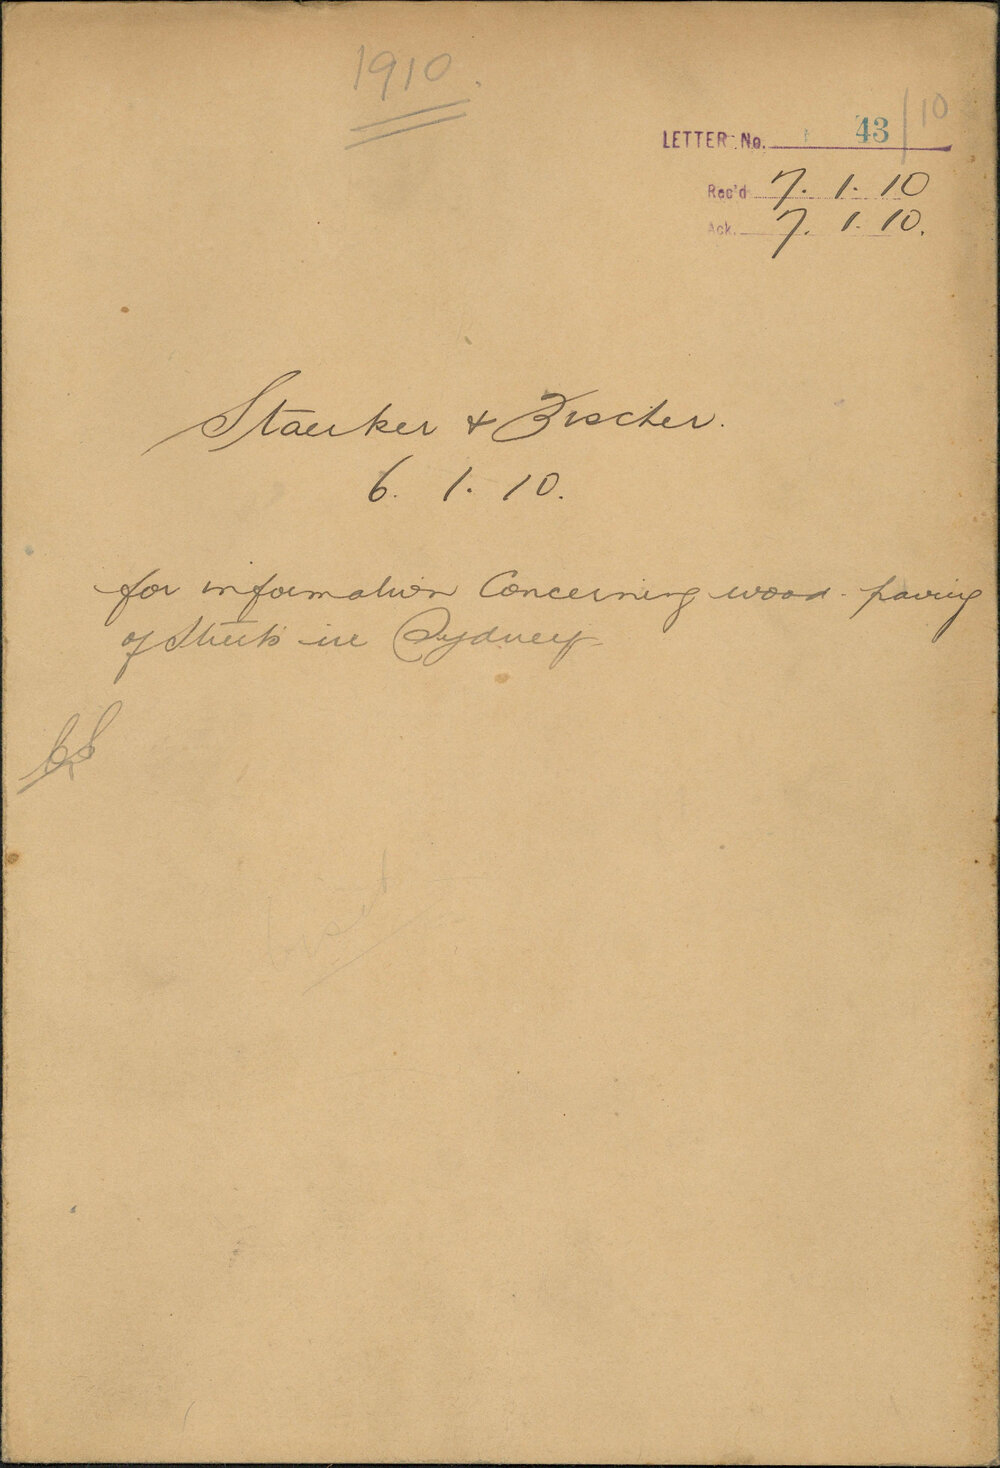 1910.
LETTER No. 43/10
Rec'd 7. 1. 10
Ack. 7. 1. 10.
Staerker & Fischer.
6. 1. 10.
for information Concerning wood-paving
of Streets in Sydney